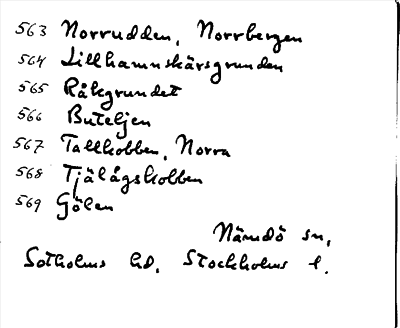 563 Norrudden, Norrbergen
564 Lillhamnskärsgrunden
565 Råkgrundet
566 Buteljen
567 Tallkobben, Norra
568 Tjälågskobben
569 Gölen
Nämdö sn,
Sotholms hd, Stockholms l.